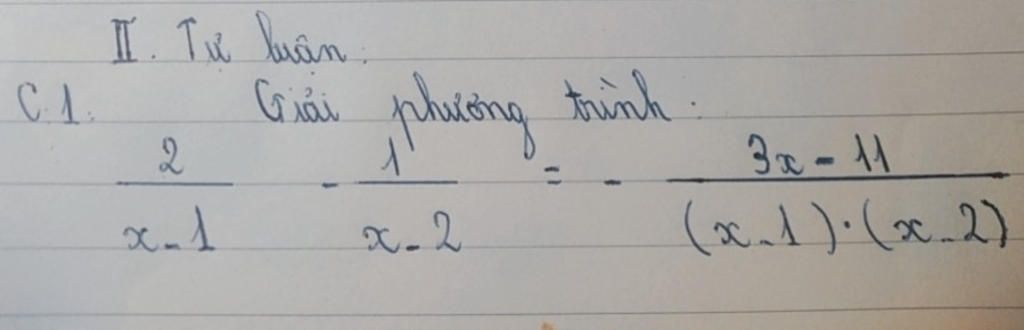 II. Tự luận.
C.1. Giải phương trình:
2/(x-1) - 1/(x-2) = - (3x-11)/((x-1).(x-2))